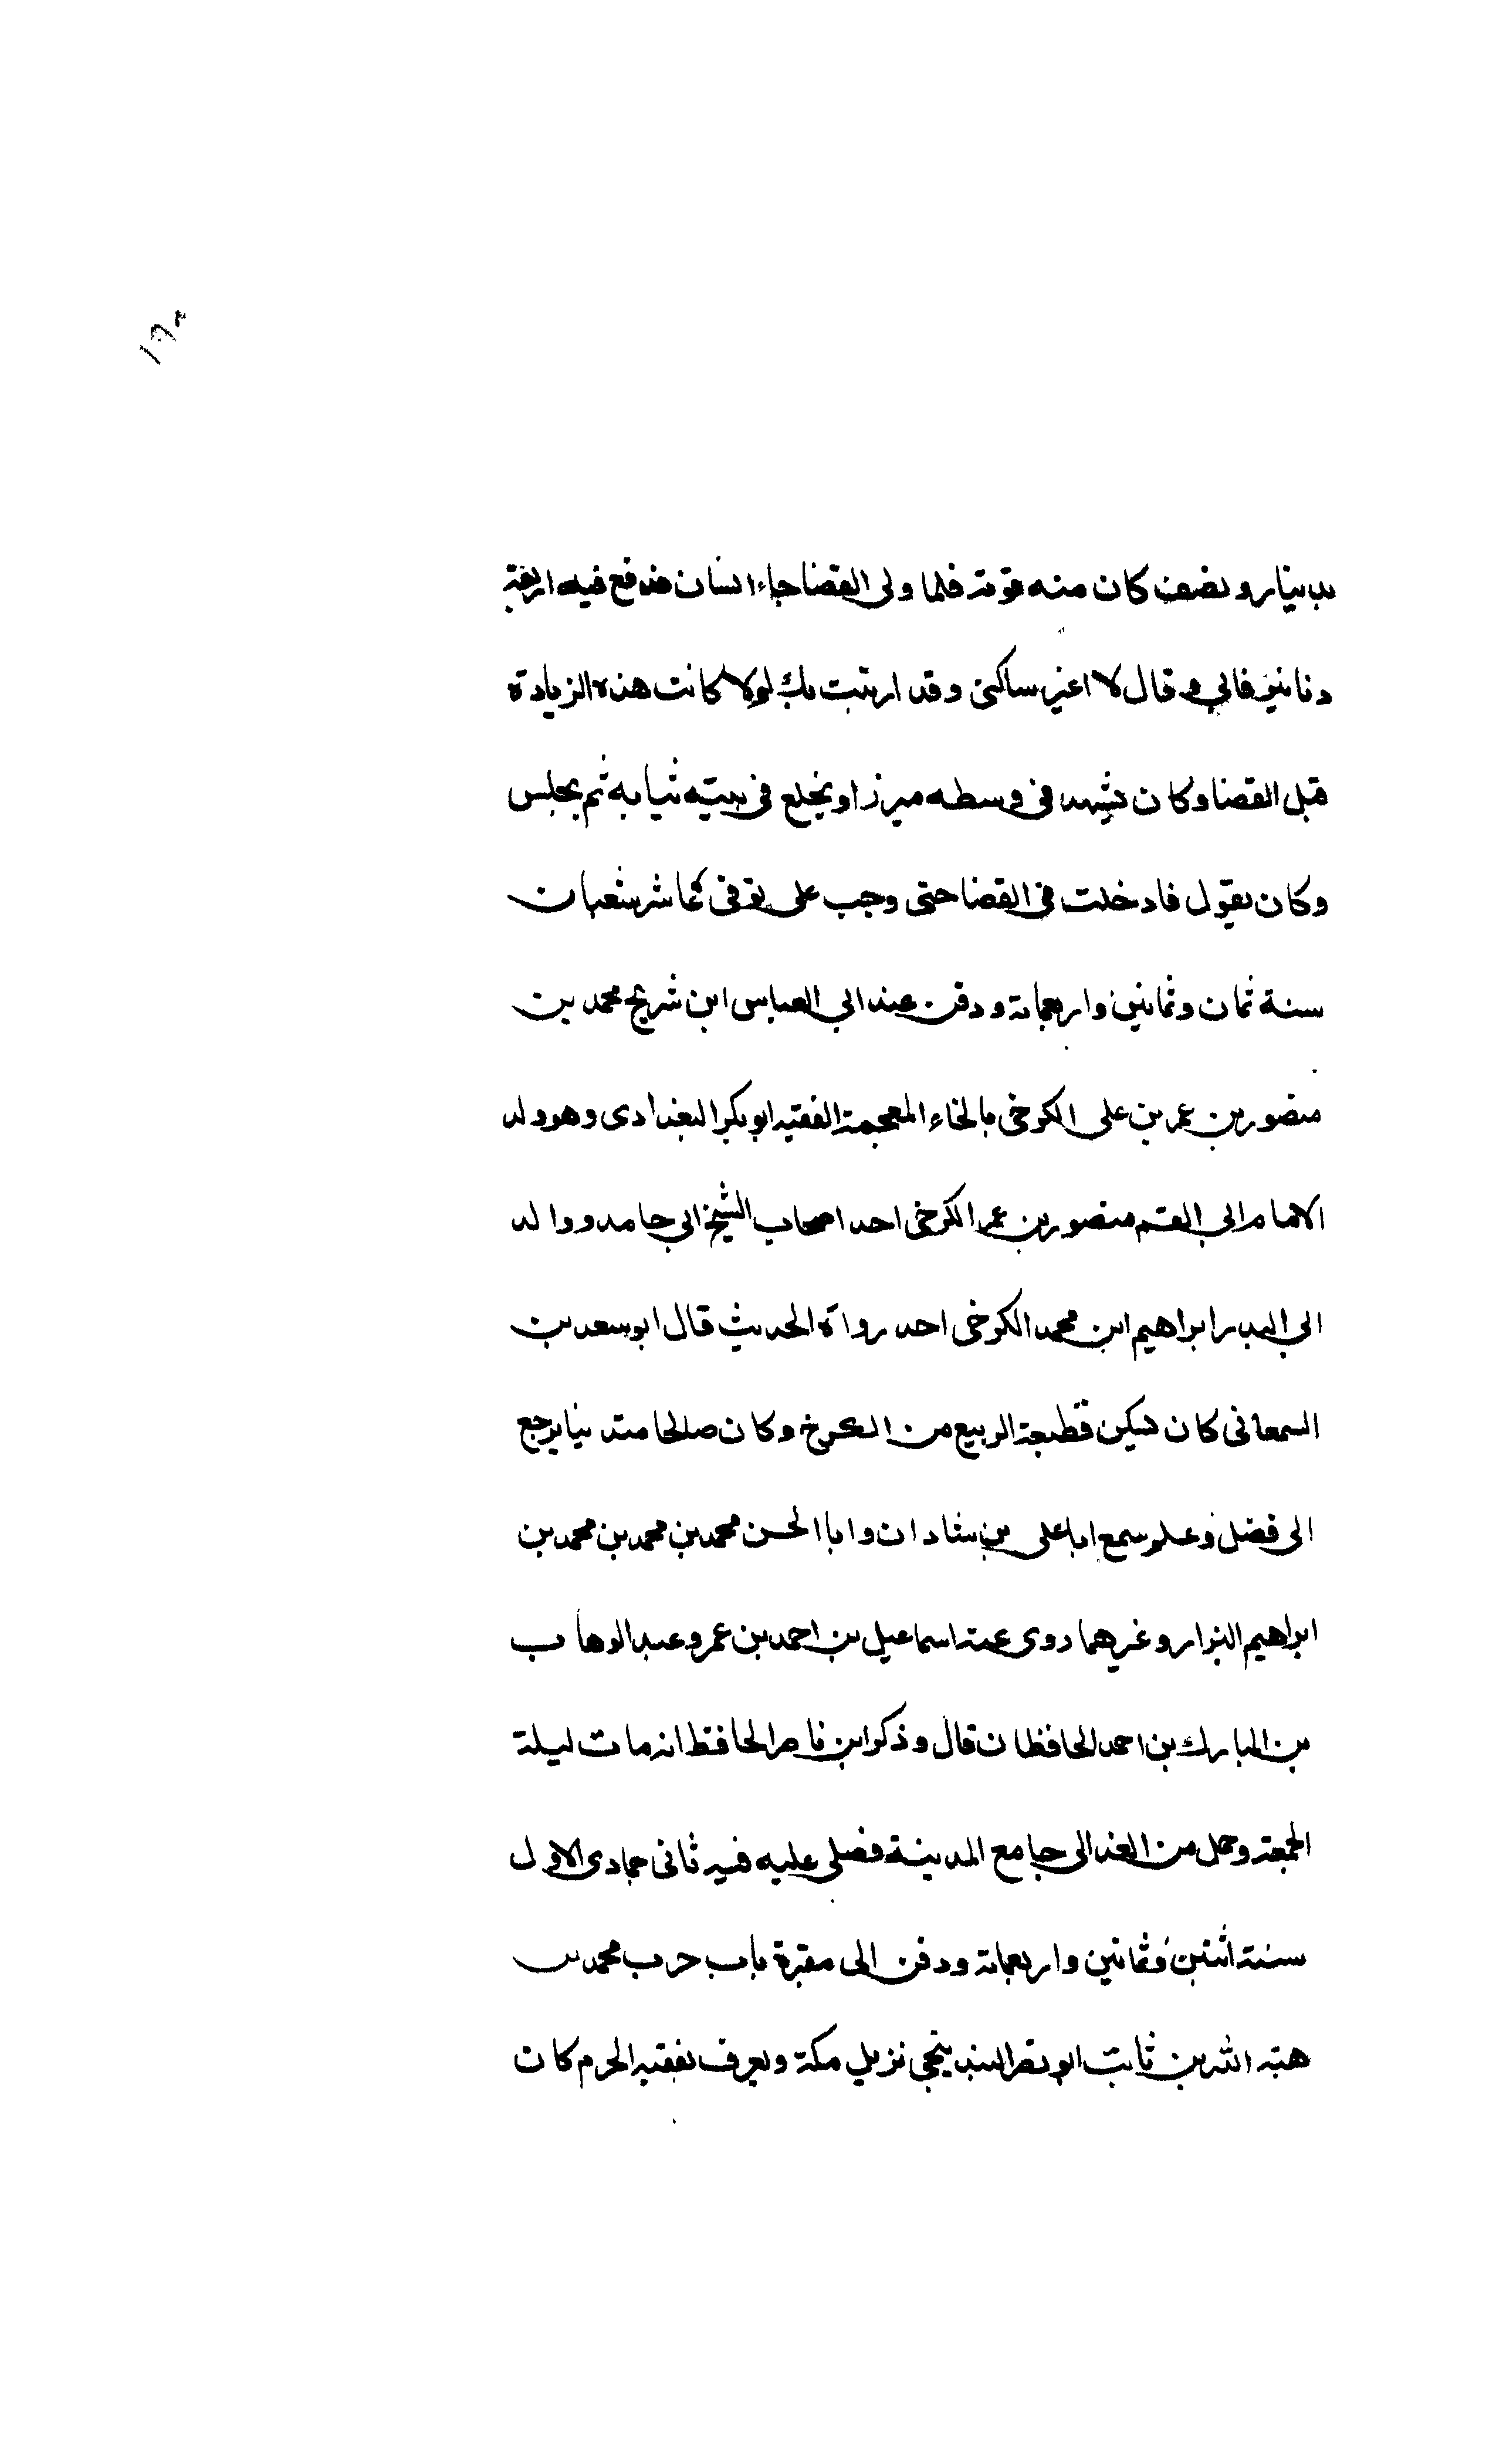 ١٩٣
بدينار ونصف كان منه قوته فلما ولى القضا جاء انسان فدفع فيه اربعة
دنانير فابى وقال لا اغير ساكنى وقد ارتبت بك لولا كانت هذه الزيادة
قبل القضا وكان يشهد فى وسطه ميرزا ويخلع فى بيته ثيابه ثم يجلس
وكان يقول فادخلت فى القضا حتى وجب على توفى عاشر شعبان
سنة ثمان وثمانين واربعماية ودفن عند ابى العباس ابن شريح محمد بن
منصور بن عمر بن على الكرخى بالخاء المعجمة الفقيه ابو بكر البغدادى وهو ولد
الامام ابى القسم منصور بن عمر الكرخى احد اصحاب الشيخ ابى حامد ووالد
ابى البدر ابراهيم ابن محمد الكرخى احد رواة الحديث قال ابو سعد بن
السمعانى كان يسكن قطيعة الربيع من الكرخ وكان صالحا متدينا يرجع
الى فضل وعلم سمع ابا على بن شادان وابا الحسن محمد بن محمد بن محمد بن
ابراهيم البزار وغيرهما روى عنه اسماعيل بن احمد بن عمر وعبد الوهاب
بن المبارك بن احمد الحافظان قال وذكر ابن ناصر الحافظ انه مات ليلة
الجمعة وحمل من الغد الى جامع المدينة فصلى عليه فيه ثانى جمادى الاول
سنة اثنين وثمانين واربعماية ودفن الى مقبرة باب حرب محمد بن
هبة الله بن ثابت ابو نصر البندنيجى نزيل مكة ويعرف بفقيه الحرم كان